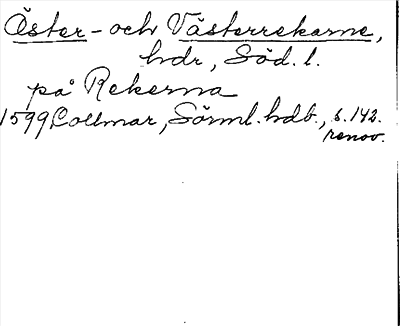 Öster- och Västerrekarne,
hdr, Söd. l.
på Rekerna
1599 Collmar, Sörml. hdb., s. 142.
renov.